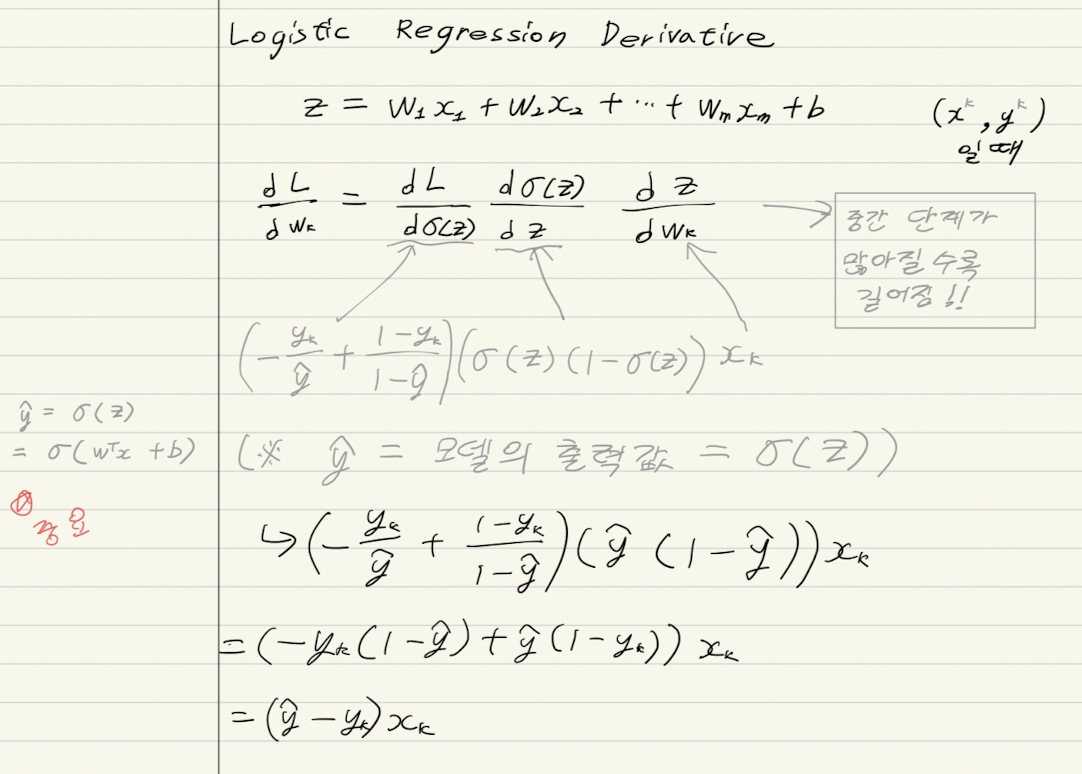 Logistic Regression Derivative
z = w₁x₁ + w₂x₂ + ··· + wₘxₘ + b
(xᵏ, yᵏ)
일 때
dL/dwₖ = dL/dσ(z) dσ(z)/dz dz/dwₖ
중간 단계가
많아질수록
길어짐!!
(-yₖ/ŷ + (1-yₖ)/(1-ŷ))(σ(z)(1-σ(z))xₖ
ŷ = σ(z)
= σ(wᵀx + b)
(※ ŷ = 모델의 출력값 = σ(z))
중요
↳(-yₖ/ŷ + (1-yₖ)/(1-ŷ))(ŷ(1-ŷ))xₖ
=(-yₖ(1-ŷ)+ŷ(1-yₖ))xₖ
=(ŷ-yₖ)xₖ